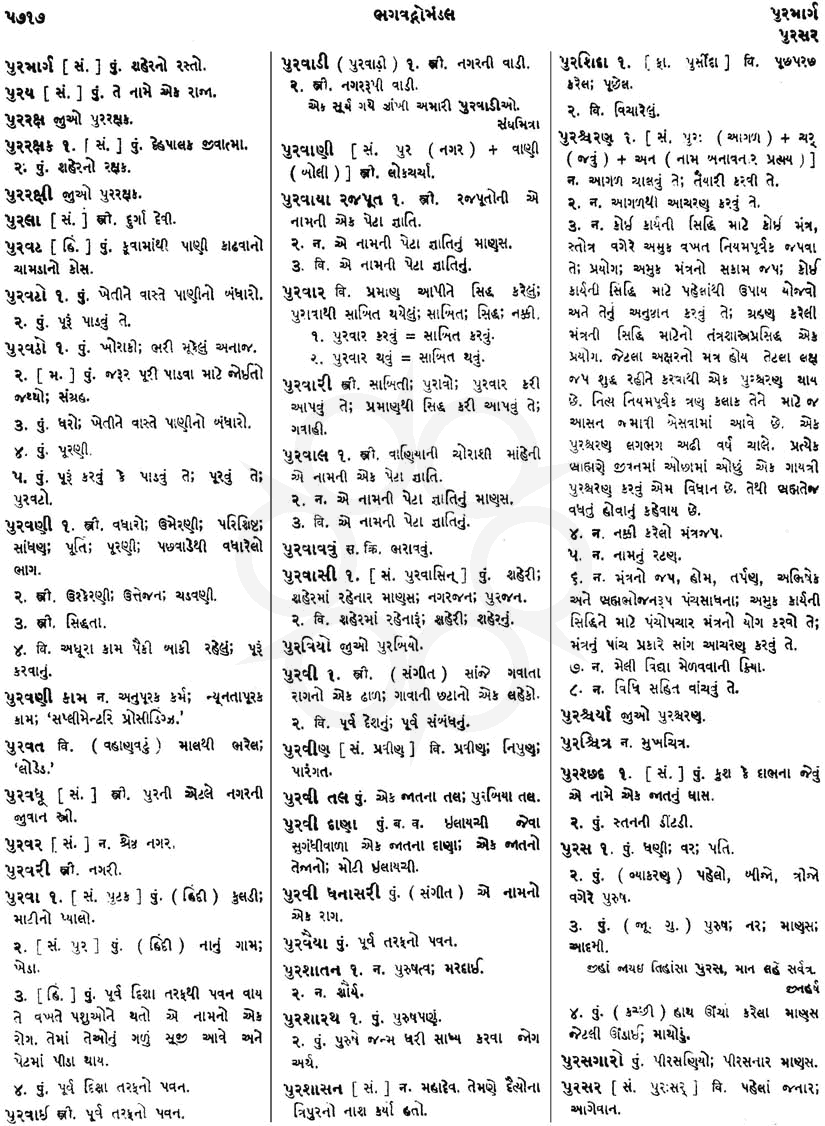 ૫૭૧૭
ભગવદ્ગોમંડલ
પુરમાર્ગ
પુરસર
પુરમાર્ગ [ સં. ] પું. શહેરનો રસ્તો.
પુરય [ સં. ] પું. તે નામે એક રાજા.
પુરરક્ષ જુઓ પુરરક્ષક.
પુરરક્ષક ૧. [ સં. ] પું. દેહપાલક જીવાત્મા.
૨. પું. શહેરનો રક્ષક.
પુરરક્ષી જુઓ પુરરક્ષક.
પુરલા [ સં. ] સ્ત્રી. દુર્ગા દેવી.
પુરવટ [ હિં. ] પું. કૂવામાંથી પાણી કાઢવાનો
ચામડાનો કોસ.
પુરવટો ૧. પું. ખેતીને વાસ્તે પાણીનો બંધારો.
૨. પું. પૂરું પાડવું તે.
પુરવઠો ૧. પું. ખોરાકી; ભરી મૂકેલું અનાજ.
૨. [ મ. ] પું. જરૂર પૂરી પાડવા માટે જોઈતો
જથ્થો; સંગ્રહ.
૩. પું. ધરો; ખેતીને વાસ્તે પાણીનો બંધારો.
૪. પું. પૂરણી.
૫. પું. પૂરું કરવું કે પાડવું તે; પૂરવું તે;
પુરવટો.
પુરવણી ૧. સ્ત્રી. વધારો; ઉમેરણી; પરિશિષ્ટ;
સાંધણ; પૂર્તિ; પૂરણી; પછવાડેથી વધારેલો
ભાગ.
૨. સ્ત્રી. ઉશ્કેરણી; ઉત્તેજન; ચડવણી.
૩. સ્ત્રી. સિદ્ધતા.
૪. વિ. અધૂરા કામ પૈકી બાકી રહેલું; પૂરું
કરવાનું.
પુરવણી કામ ન. અનુપૂરક કર્મ; ન્યૂનતાપૂરક
કામ; ‘સપ્લીમેન્ટરિ પ્રોસીડિંગ્ઝ.’
પુરવત વિ. ( વહાણવટું ) માલથી ભરેલ;
‘લોડેડ.’
પુરવધૂ [ સં. ] સ્ત્રી. પુરની એટલે નગરની
જુવાન સ્ત્રી.
પુરવર [ સં. ] ન. શ્રેષ્ઠ નગર.
પુરવરી સ્ત્રી. નગરી.
પુરવા ૧. [ સં. પુટક ] પું. ( હિંદી ) કુલડી;
માટીનો પ્યાલો.
૨. [ સં. પુર ] પું. ( હિંદી ) નાનું ગામ;
ખેડા.
૩. [ હિં. ] પું. પૂર્વ દિશા તરફથી પવન વાય
તે વખતે પશુઓને થતો એ નામનો એક
રોગ. તેમાં તેઓનું ગળું સૂજી આવે અને
પેટમાં પીડા થાય.
૪. પું. પૂર્વ દિશા તરફનો પવન.
પુરવાઈ સ્ત્રી. પૂર્વ તરફનો પવન.
પુરવાડી ( પુરવાડી ) ૧. સ્ત્રી. નગરની વાડી.
૨. સ્ત્રી. નગરરૂપી વાડી.
એક સૂર્ય ગયે ઝાંખી અમારી પુરવાડીઓ.
સંઘમિત્રા
પુરવાણી [ સં. પુર ( નગર ) + વાણી
( બોલી ) ] સ્ત્રી. લોકચર્ચા.
પુરવાયા રજપૂત ૧. સ્ત્રી. રજપૂતોની એ
નામની એક પેટા જ્ઞાતિ.
૨. ન. એ નામની પેટા જ્ઞાતિનું માણસ.
૩. વિ. એ નામની પેટા જ્ઞાતિનું.
પુરવાર વિ. પ્રમાણ આપીને સિદ્ધ કરેલું;
પુરાવાથી સાબિત થયેલું; સાબિત; સિદ્ધ; નક્કી.
૧. પુરવાર કરવું = સાબિત કરવું.
૨. પુરવાર થવું = સાબિત થવું.
પુરવારી સ્ત્રી. સાબિતી; પુરાવો; પુરવાર કરી
આપવું તે; પ્રમાણથી સિદ્ધ કરી આપવું તે;
ગવાહી.
પુરવાલ ૧. સ્ત્રી. વાણિયાની ચોરાશી માંહેની
એ નામની એક પેટા જ્ઞાતિ.
૨. ન. એ નામની પેટા જ્ઞાતિનું માણસ.
૩. વિ. એ નામની પેટા જ્ઞાતિનું.
પુરવાવવું સ. ક્રિ. ભરાવવું.
પુરવાસી ૧. [ સં. પુરવાસિન્ ] પું. શહેરી;
શહેરમાં રહેનાર માણસ; નગરજન; પુરજન.
૨. વિ. શહેરમાં રહેનારું; શહેરી; શહેરનું.
પુરવિયો જુઓ પુરબિયો.
પુરવી ૧. સ્ત્રી. ( સંગીત ) સાંજે ગવાતા
રાગનો એક ઢાળ; ગાવાની છટાનો એક લહેકો.
૨. વિ. પૂર્વ દેશનું; પૂર્વ સંબંધનું.
પુરવીણ [ સં. પ્રવીણ ] વિ. પ્રવીણ; નિપુણ;
પારંગત.
પુરવી તલ પું. એક જાતના તલ; પુરબિયા તલ.
પુરવી દાણા પું. બ. વ. ઇલાયચી જેવા
સુગંધીવાળા એક જાતના દાણા; એક જાતનો
તેજાનો; મોટી ઇલાયચી.
પુરવી ધનાસરી પું. ( સંગીત ) એ નામનો
એક રાગ.
પુરવૈયા પું. પૂર્વ તરફનો પવન.
પુરશાતન ૧. ન. પુરુષત્વ; મરદાઈ.
૨. ન. શૌર્ય.
પુરશારથ ૧. પું. પુરુષપણું.
૨. પું. પુરુષે જન્મ ધરી સાધ્ય કરવા જોગ
અર્થ.
પુરશાસન [ સં. ] ન. મહાદેવ. તેમણે દૈત્યોના
ત્રિપુરનો નાશ કર્યો હતો.
પુરશિદા ૧. [ ફા. પુર્સીદા ] વિ. પૂછપરછ
કરેલ; પૂછેલ.
૨. વિ. વિચારેલું.
પુરશ્ચરણ ૧. [ સં. પુરઃ ( આગળ ) + ચર્
( જવું ) + અન ( નામ બનાવનાર પ્રત્યય ) ]
ન. આગળ ચાલવું તે; તૈયારી કરવી તે.
૨. ન. આગળથી આચરણ કરવું તે.
૩. ન. કોઈ કાર્યની સિદ્ધિ માટે કોઈ મંત્ર,
સ્તોત્ર વગેરે અમુક વખત નિયમપૂર્વક જપવા
તે; પ્રયોગ; અમુક મંત્રનો સકામ જપ; કોઈ
કાર્યની સિદ્ધિ માટે પહેલાંથી ઉપાય યોજવો
અને તેનું અનુષ્ઠાન કરવું તે; ગ્રહણ કરેલી
મંત્રની સિદ્ધિ માટેનો તંત્રશાસ્ત્રપ્રસિદ્ધ એક
પ્રયોગ. જેટલા અક્ષરનો મંત્ર હોય તેટલા લક્ષ
જપ શુદ્ધ રહીને કરવાથી એક પુરશ્ચરણ થાય
છે. નિત્ય નિયમપૂર્વક ત્રણ કલાક તેને માટે જ
આસન જમાવી બેસવામાં આવે છે. એક
પુરશ્ચરણ લગભગ અઢી વર્ષ ચાલે. પ્રત્યેક
બ્રાહ્મણે જીવનમાં ઓછામાં ઓછું એક ગાયત્રી
પુરશ્ચરણ કરવું એમ વિધાન છે. તેથી બ્રહ્મતેજ
વધતું હોવાનું કહેવાય છે.
૪. ન. નક્કી કરેલો મંત્રજપ.
૫. ન. નામનું રટણ.
૬. ન. મંત્રનો જપ, હોમ, તર્પણ, અભિષેક
અને બ્રહ્મભોજનરૂપ પંચસાધના; અમુક કાર્યની
સિદ્ધિને માટે પંચોપચાર મંત્રનો યોગ કરવો તે;
મંત્રનું પાંચ પ્રકારે સાંગ આચરણ કરવું તે.
૭. ન. મેલી વિદ્યા મેળવવાની ક્રિયા.
૮. ન. વિધિ સહિત વાંચવું તે.
પુરશ્ચર્યા જુઓ પુરશ્ચરણ.
પુરશ્ચિત્ર ન. મુખચિત્ર.
પુરશ્છદ ૧. [ સં. ] પું. કુશ કે દાભના જેવું
એ નામે એક જાતનું ઘાસ.
૨. પું. સ્તનની ડીંટડી.
પુરસ ૧. પું. ધણી; વર; પતિ.
૨. પું. ( વ્યાકરણ ) પહેલો, બીજો, ત્રીજો
વગેરે પુરુષ.
૩. પું. ( જૂ. ગુ. ) પુરુષ; નર; માણસ;
આદમી.
જીહાં જાયઇ તિહાંસા પુરસ, માન લહેં સર્વત્ર.
જીનહર્ષ
૪. પું. ( કચ્છી ) હાથ ઊંચા કરેલા માણસ
જેટલી ઊંડાઈ; માથોડું.
પુરસગારો પું. પીરસણિયો; પીરસનાર માણસ.
પુરસર [ સં. પુરઃસર્ ] વિ. પહેલાં જનાર;
આગેવાન.